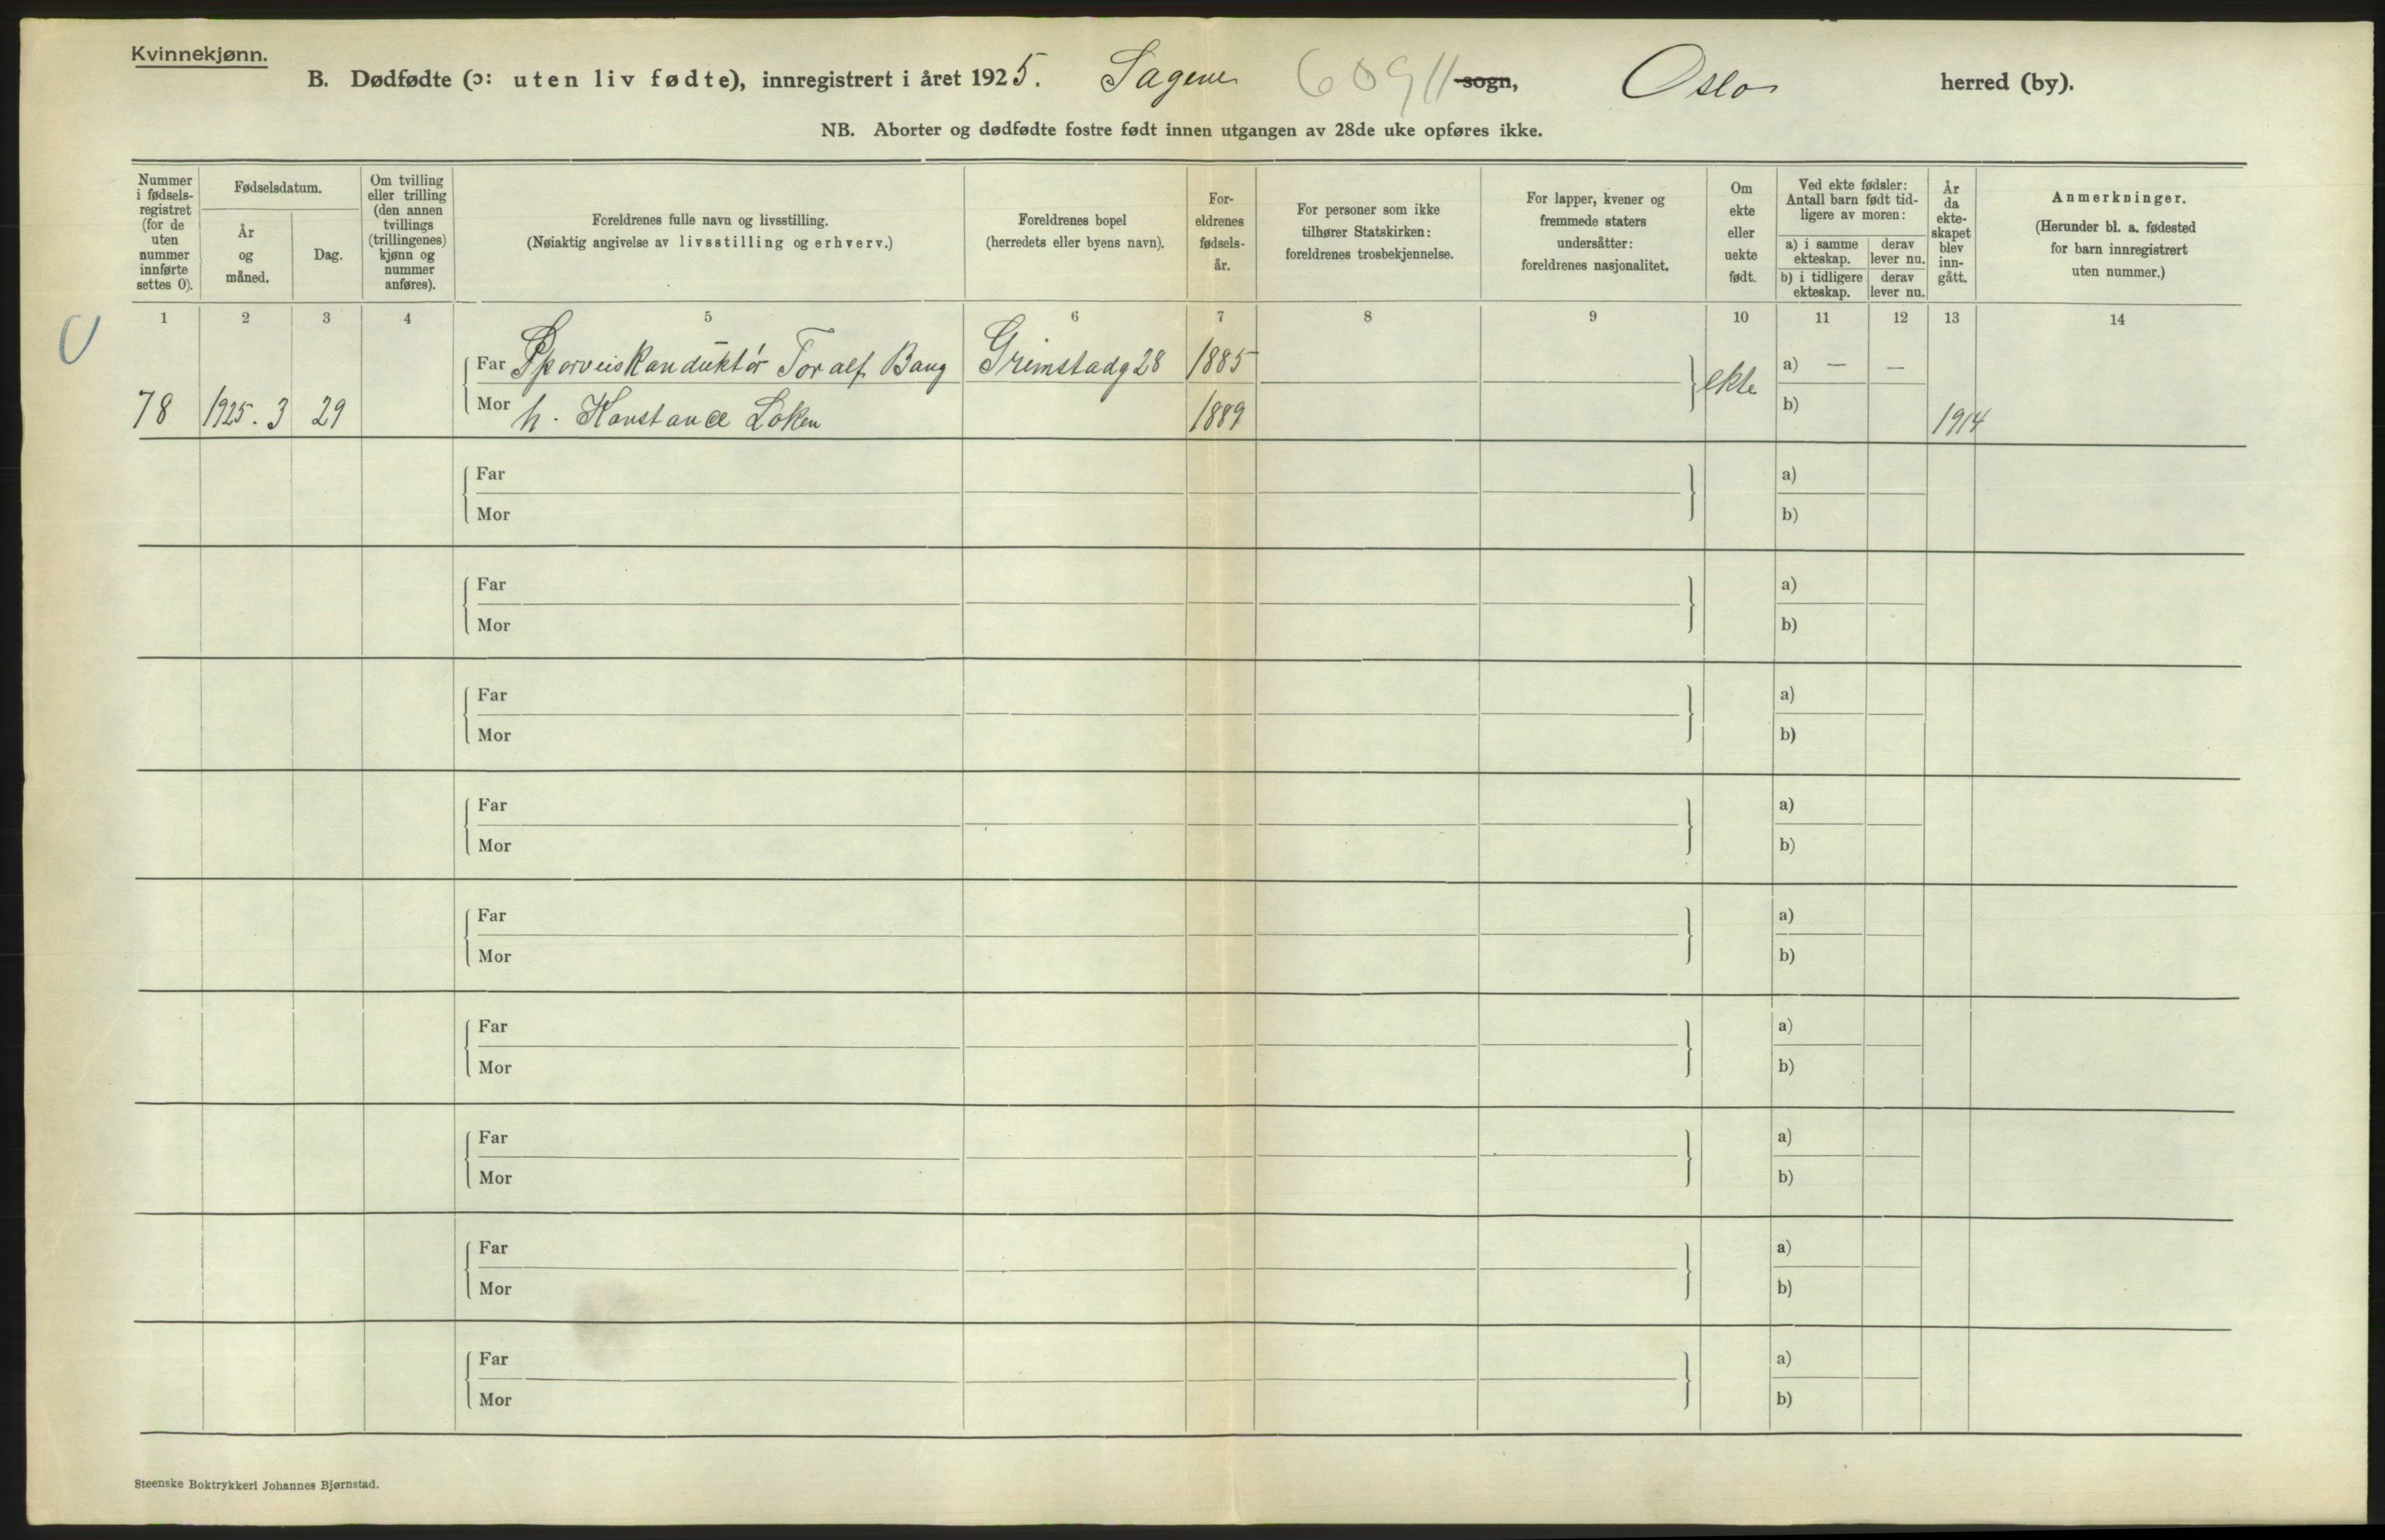 Kvinnekjønn.
B. Dødfødte (ɔ: uten liv fødte), innregistrert i året 1925. Sagene 609 11 sogn, Oslo herred (by).
NB. Aborter og dødfødte fostre født innen utgangen av 28de uke opføres ikke.
Nummer
i fødsels-
registret
(for de
uten
nummer
innførte
settes 0).
Fødselsdatum.
År
og
måned.
Dag.
Om tvilling
eller trilling
(den annen
tvillings
(trillingenes)
kjønn og
nummer
anføres).
Foreldrenes fulle navn og livsstilling.
(Nøiaktig angivelse av livsstilling og erhverv.)
Foreldrenes bopel
(herredets eller byens navn).
For-
eldrenes
fødsels-
år.
For personer som ikke
tilhører Statskirken:
foreldrenes trosbekjennelse.
For lapper, kvener og
fremmede staters
undersåtter:
foreldrenes nasjonalitet.
Om
ekte
eller
uekte
født.
Ved ekte fødsler:
Antall barn født tid-
ligere av moren:
a) i samme
ekteskap.
derav
lever nu.
b) i tidligere
ekteskap.
derav
lever nu.
År
da
ekte-
skapet
blev
inn-
gått.
Anmerkninger.
(Herunder bl. a. fødested
for barn innregistrert
uten nummer.)
1 2 3 4 5 6 7 8 9 10 11 12 13 14
Far Sporveiskonduktør Toralf Bang Grimstadg 28 1885 ekte a) — —
78 1925. 3 29 Mor h. Konstance Løken 1889 b) 1914
Far a)
Mor b)
Far a)
Mor b)
Far a)
Mor b)
Far a)
Mor b)
Far a)
Mor b)
Far a)
Mor b)
Far a)
Mor b)
Far a)
Mor b)
Far a)
Mor b)
Steenske Boktrykkeri Johannes Bjørnstad.